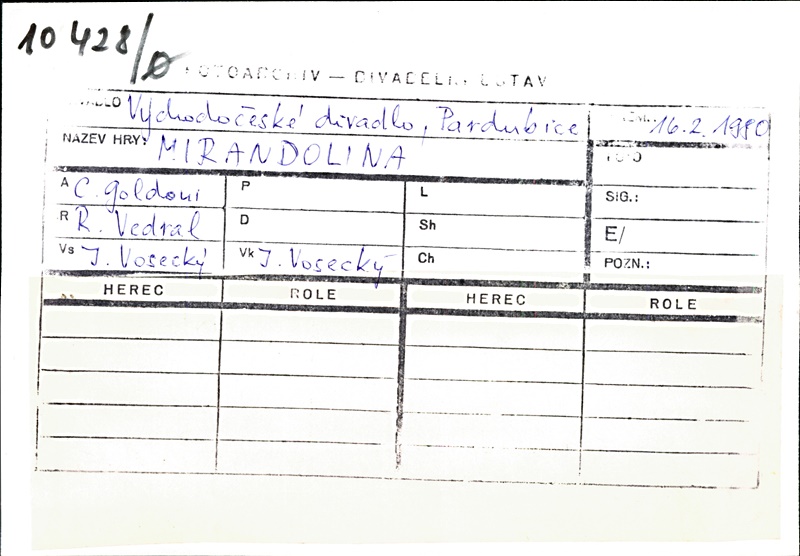 10 428/ø
FOTOARCHIV — DIVADELNÍ ÚSTAV
DIVADLO Východočeské divadlo, Pardubice 16.2.1980
NÁZEV HRY: MIRANDOLINA FOTO
A C. Goldoni P L SIG.:
R R. Vedral D Sh E/
Vs J. Vosecký Vk J. Vosecký Ch POZN.:
HEREC ROLE HEREC ROLE